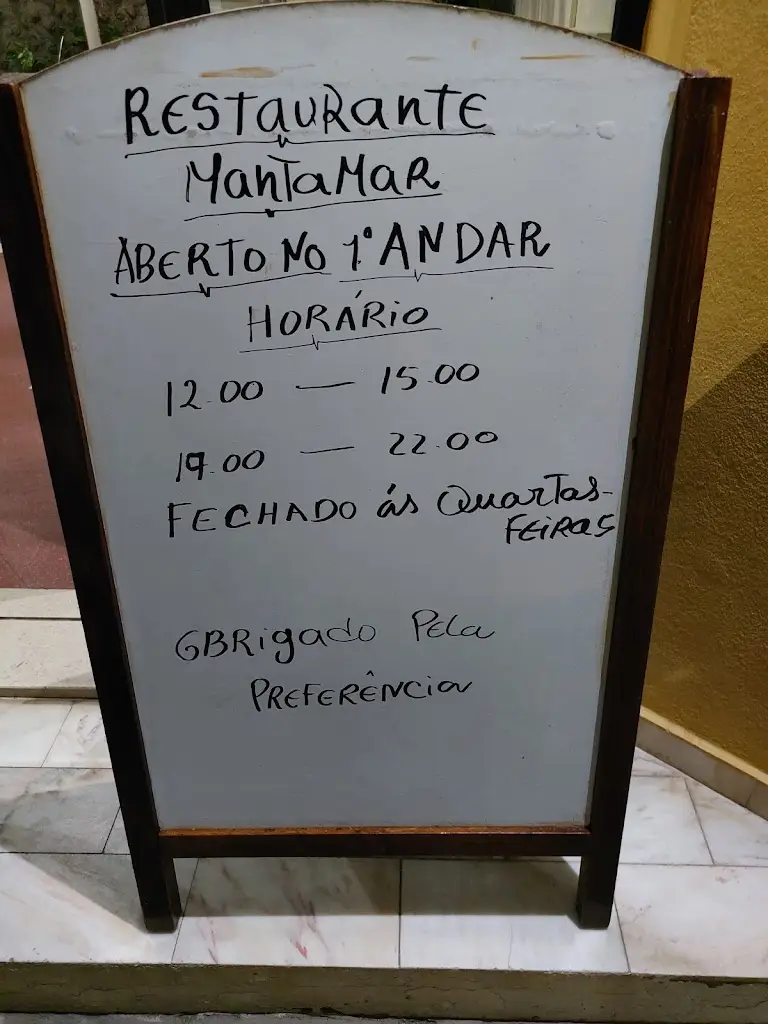 RESTAURANTE
MANTAMAR
ABERTO NO 1º ANDAR
HORÁRIO
12.00 — 15.00
19.00 — 22.00
FECHADO ás QUARTAS-
FEIRAS
OBRIGADO PELA
PREFERÊNCIA